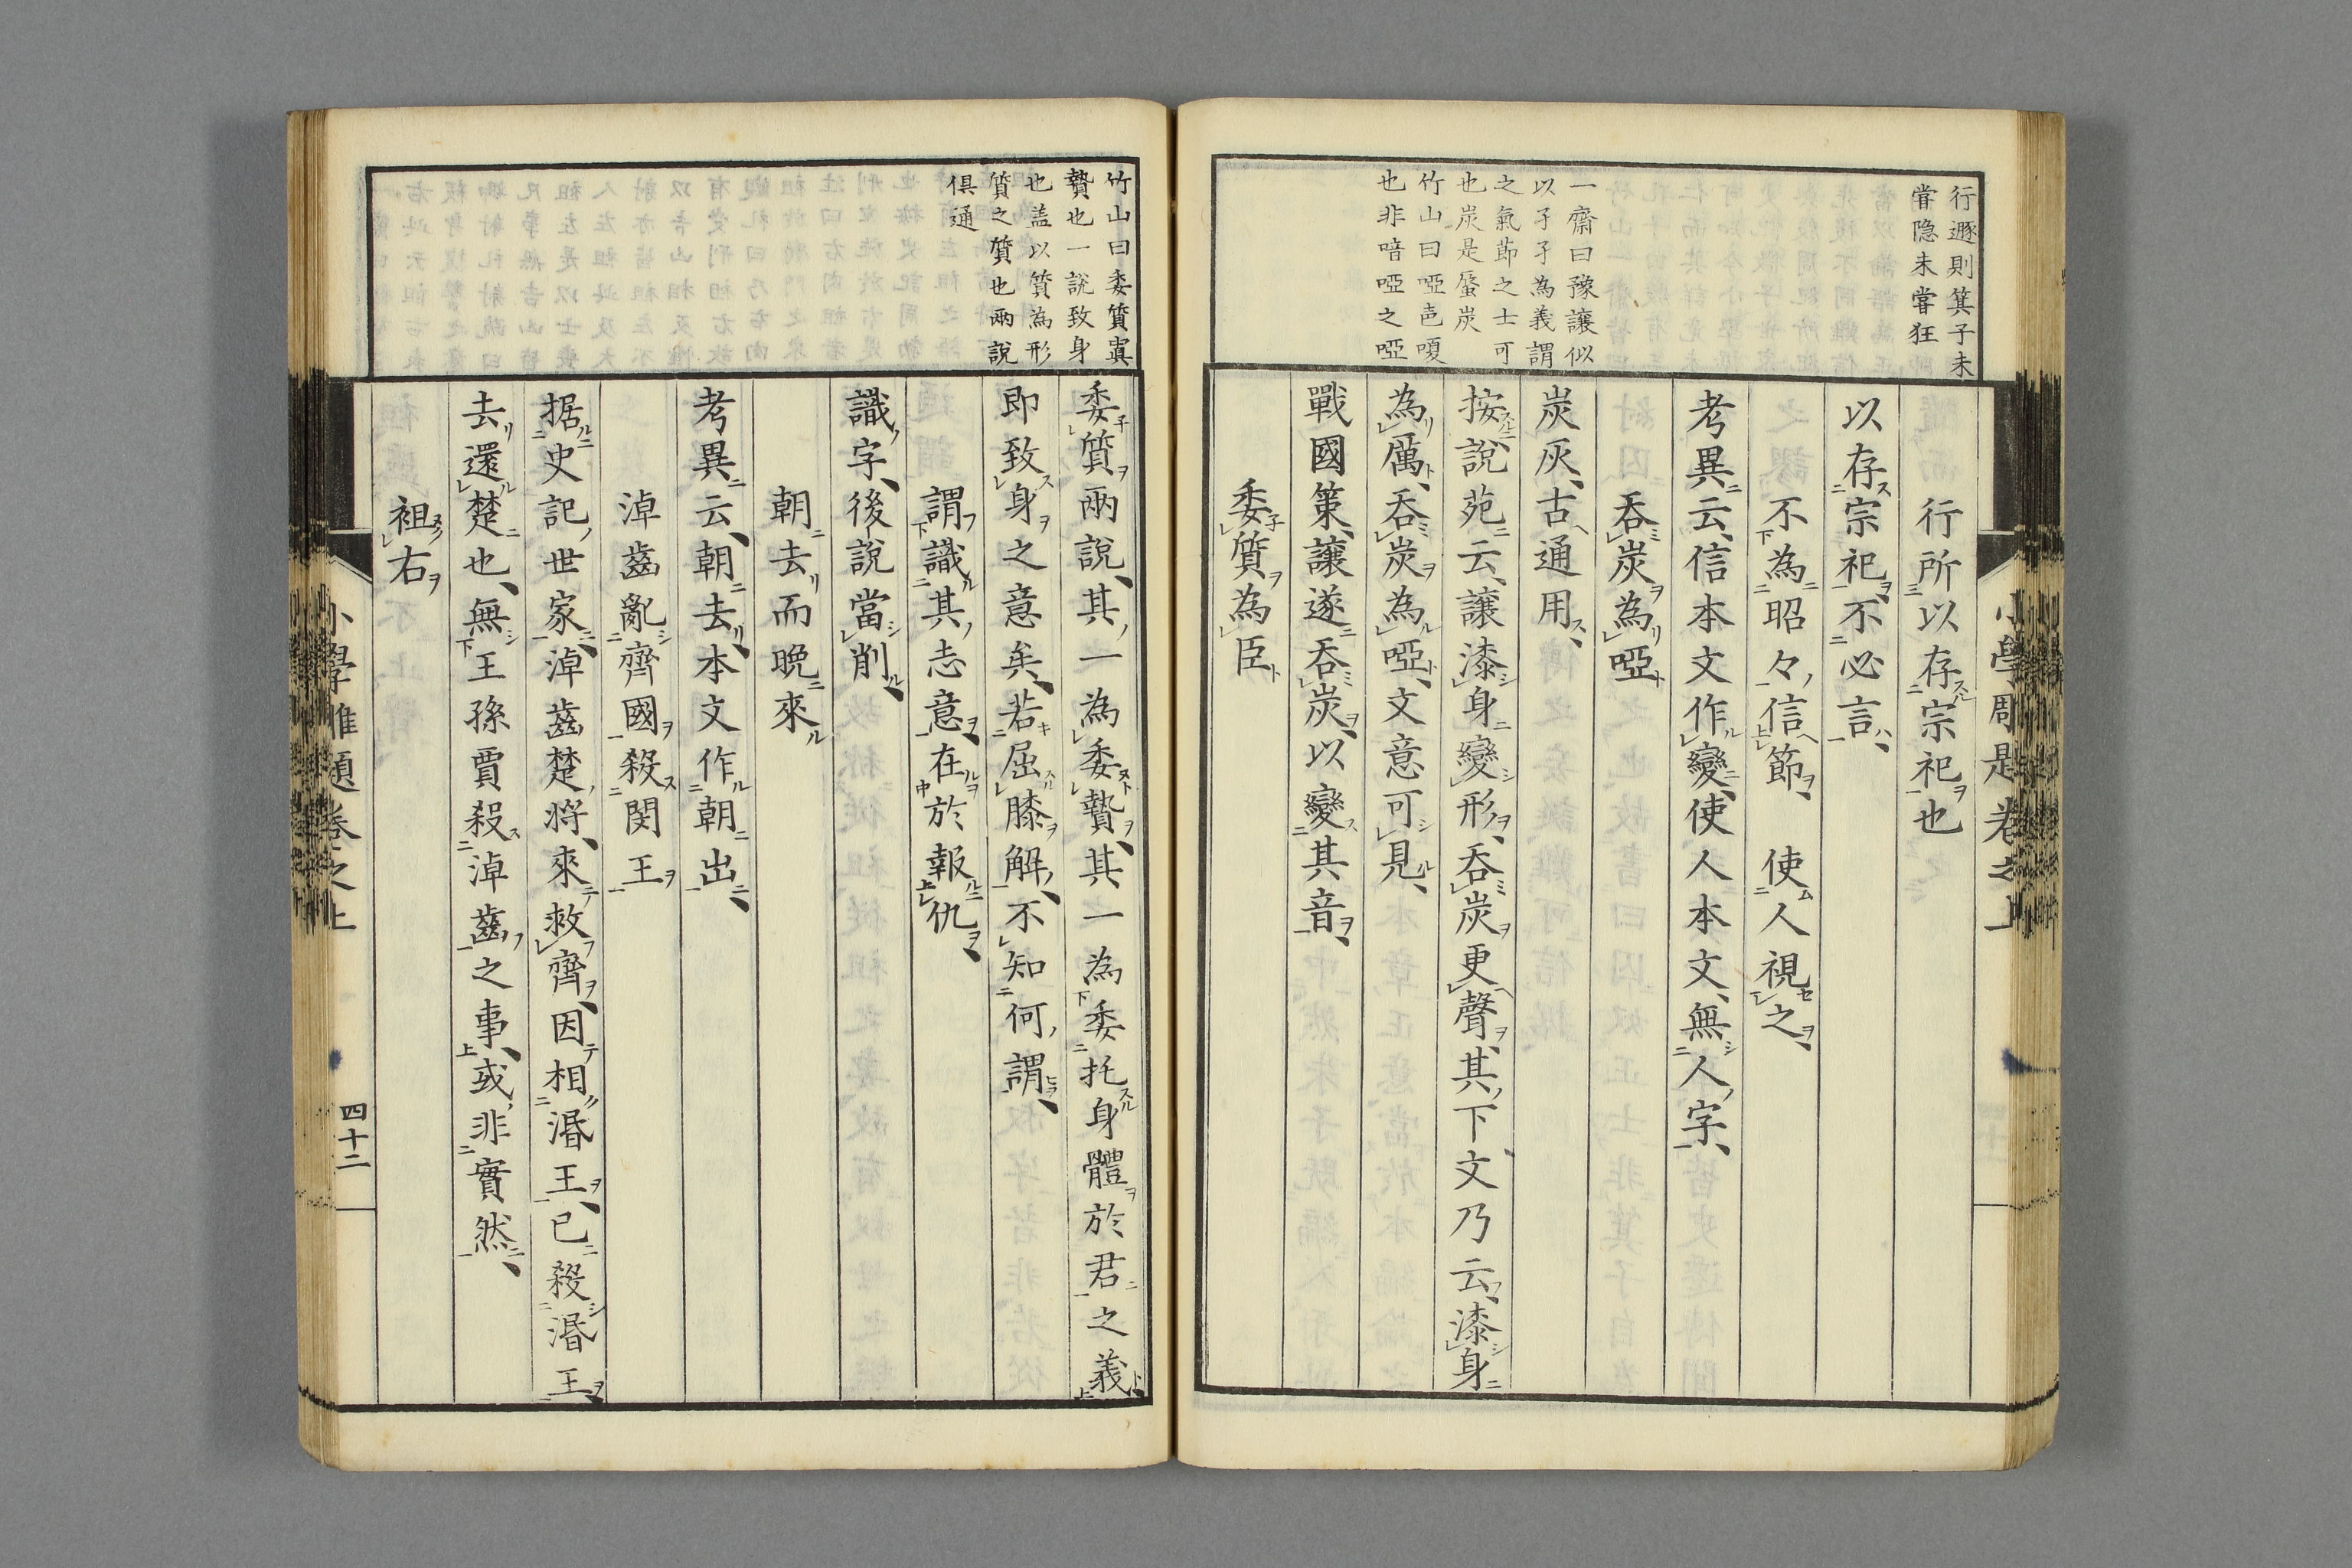 行遯則箕子未
甞隐未甞狂
一齋曰豫讓似
以孑孑為義謂
之氣節之士可
也炭是蜃炭
竹山曰啞邑嗄
也非喑啞之啞
行所以存宗祀也
以存宗祀不必言
不為昭々信節 使人視之
考異云信本文作變使人本文無人字
吞炭為啞
炭灰古通用
按說苑云讓漆身變形吞炭更聲其下文乃云漆身
為厲吞炭為啞文意可見
戰國策讓遂吞炭以變其音
委質為臣
竹山曰委質寘
贄也一說致身
也盖以質為形
質之質也兩說
俱通
委質兩說其一為委贄其一為委托身體於君之義
即致身之意矣若屈膝解不知何謂
謂識其志意在於報仇
識字後說當削
朝去而晚來
考異云朝去本文作朝出
淖齒亂齊國殺閔王
据史記世家淖齒楚將來救齊因相湣王已殺湣王
去還楚也無王孫賈殺淖齒之事或非實然
袒右
四十二